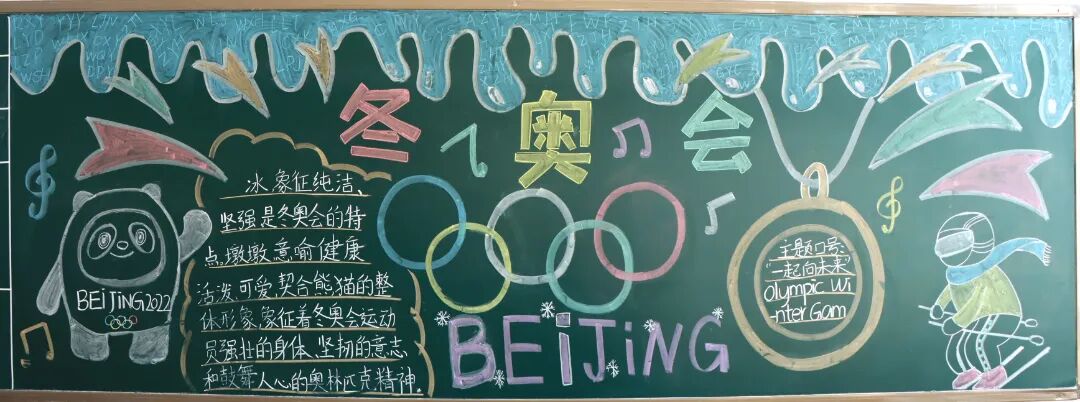 冬奥会
冰,象征纯洁、
坚强,是冬奥会的特
点,墩墩,意喻健康
活泼,可爱,契合熊猫的整
体形象,象征着冬奥会运动
员强壮的身体、坚韧的意志
和鼓舞人心的奥林匹克精神.
BEiJING2022
BEiJiNG
主题口号:
"一起向未来"
Olympic Wi
-nter Gam